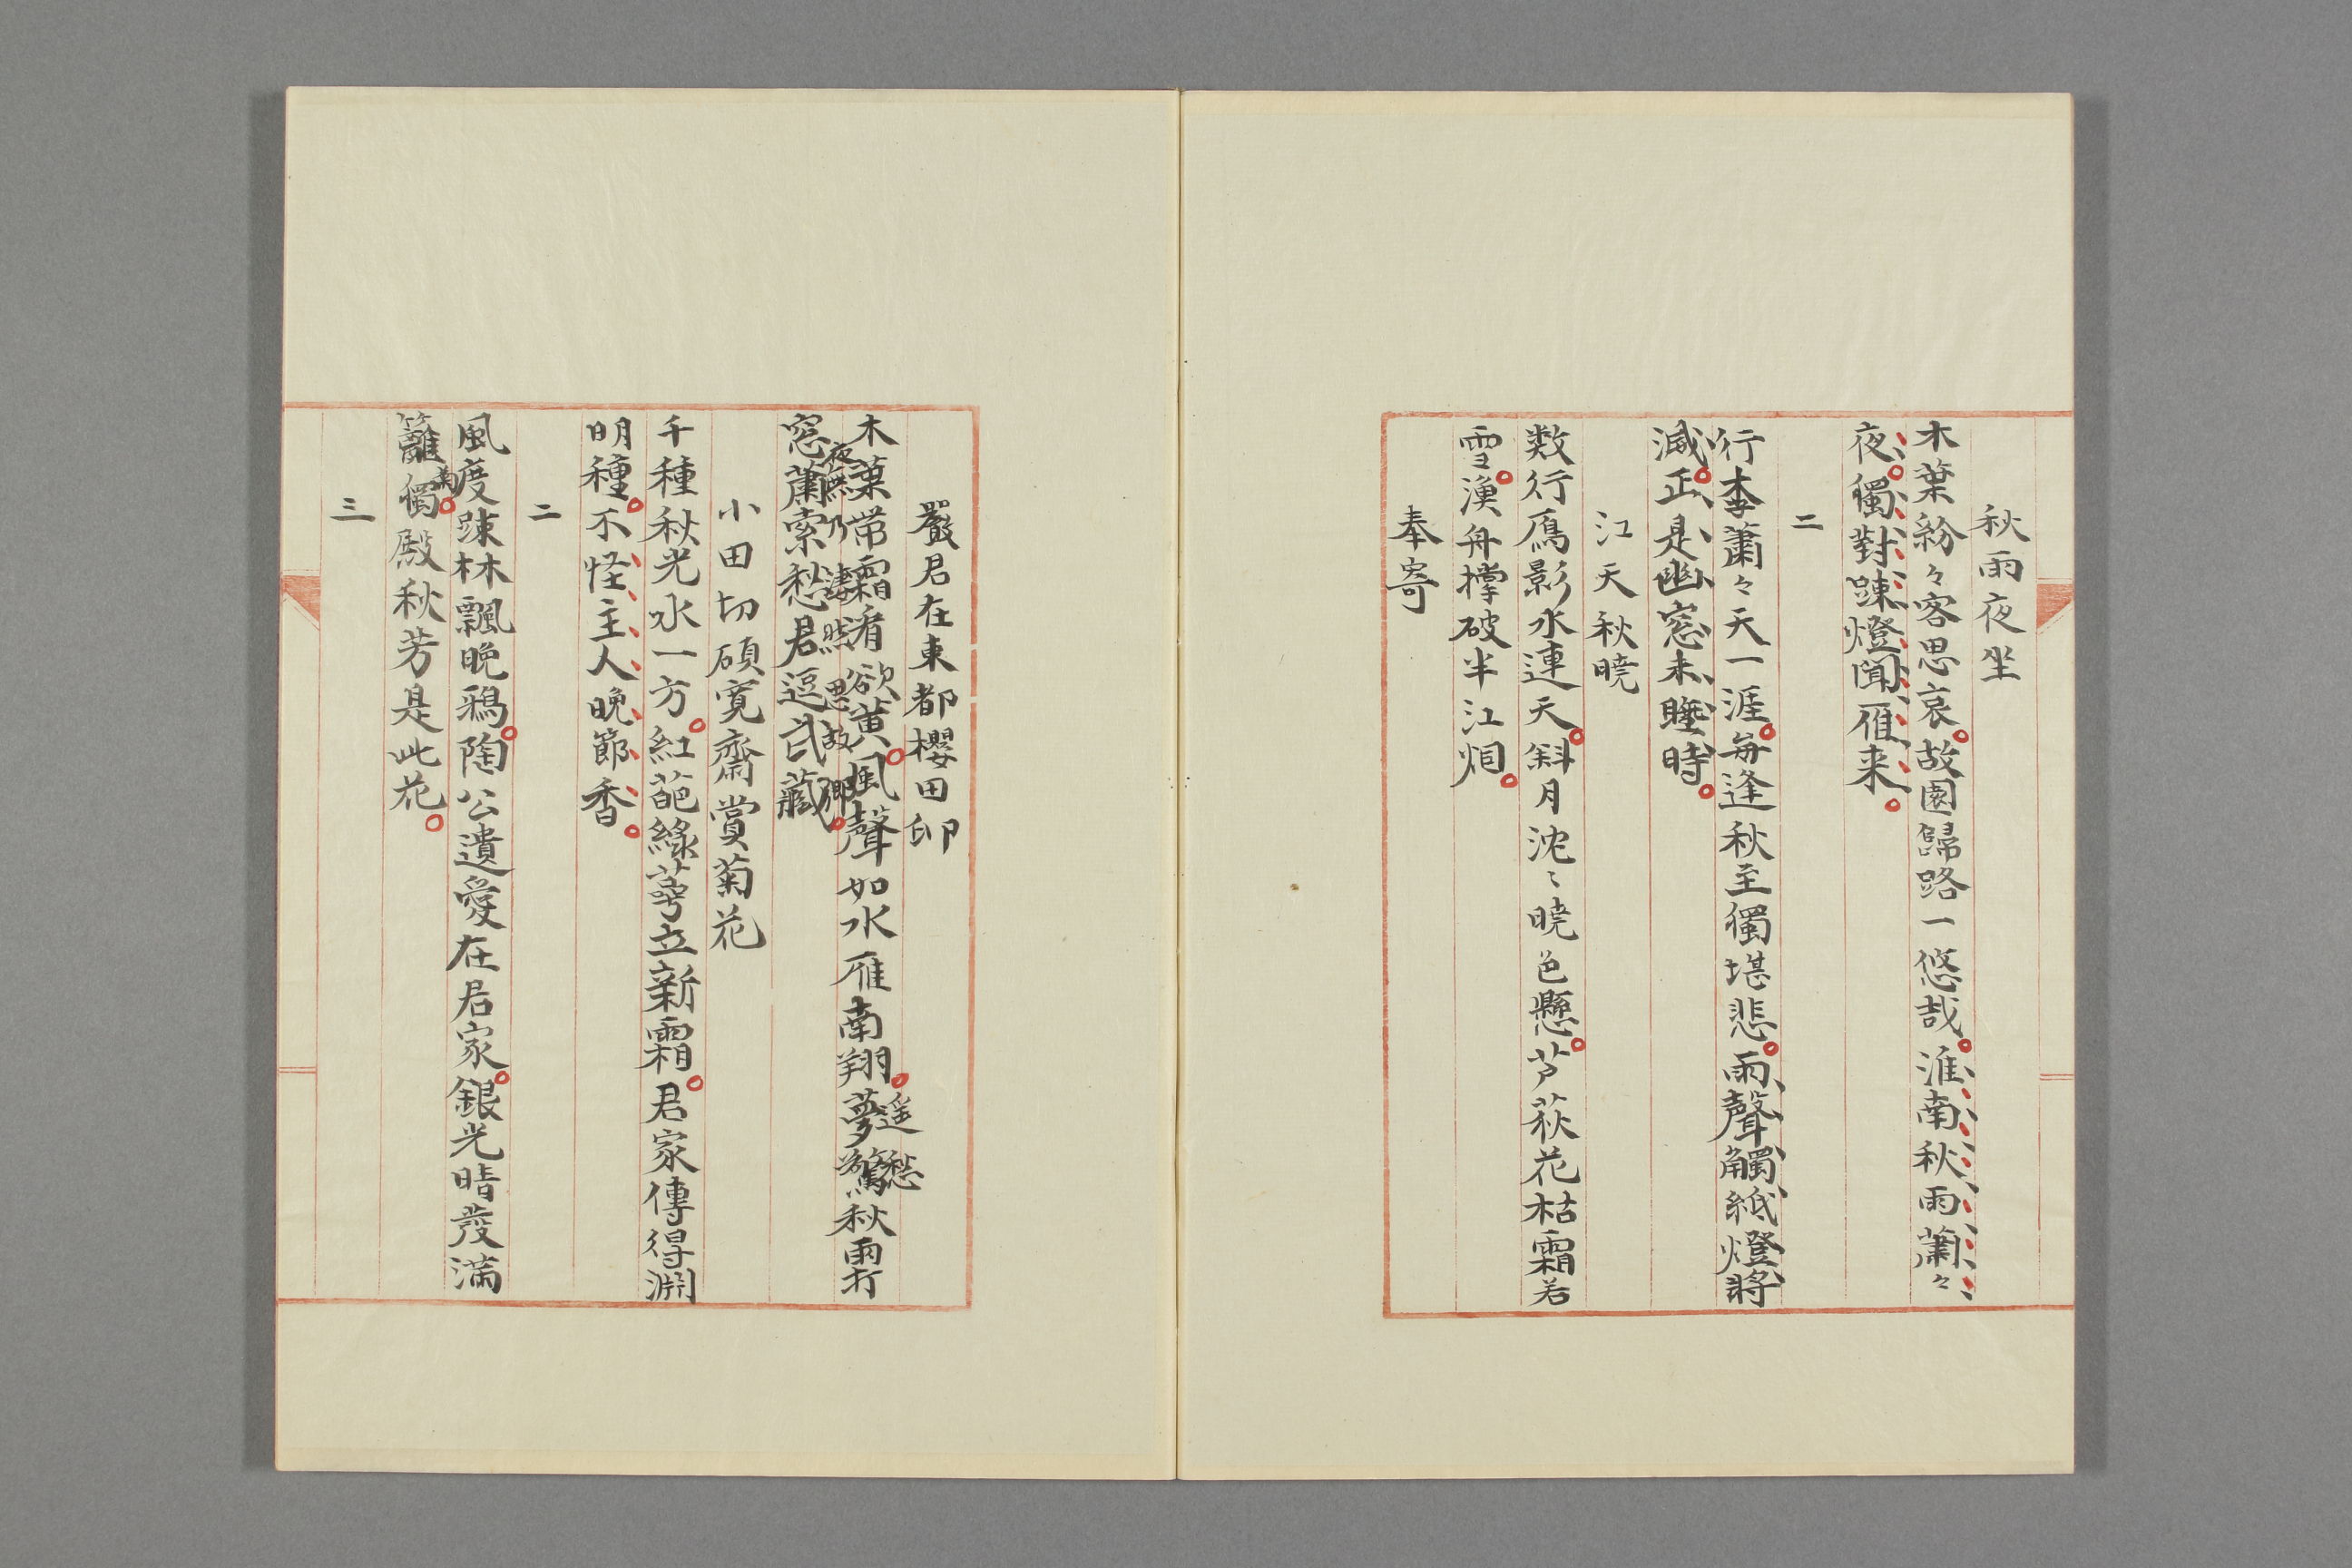 秋雨夜坐
木葉紛々客思哀故園歸路一悠哉淮南秋雨蕭々
夜獨對踈燈聞雁来
二
行李蕭々天一涯毎逢秋至獨堪悲雨聲觸紙燈將
滅正是幽窓未睡時
江天秋曉
数行鴈影水連天斜月沈々曉色懸芦荻花枯霜若
雪漁舟撑破半江烟
奉寄
嚴君在東都櫻田邸
木葉帯霜看欲黄風聲如水雁南翔夢驚秋雨打
遥愁
窓蕭索愁君逗武藏
夜乃凄然思故郷
小田切碩寛齋賞菊花
千種秋光水一方紅葩緑萼立新霜君家傳得淵
明種不怪主人晩節香
二
風度踈林飄晩鴉陶公遺愛在君家銀光晴發滿
籬獨殿秋芳是此花
菊
三